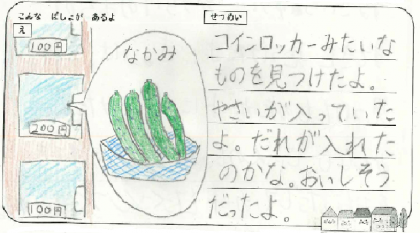 こんな ばしょが あるよ
え
100円
200円
100円
なかみ
せつめい
コインロッカーみたいな
ものを見つけたよ。
やさいが入っていた
よ。だれが入れた
のかな。おいしそう
だったよ。